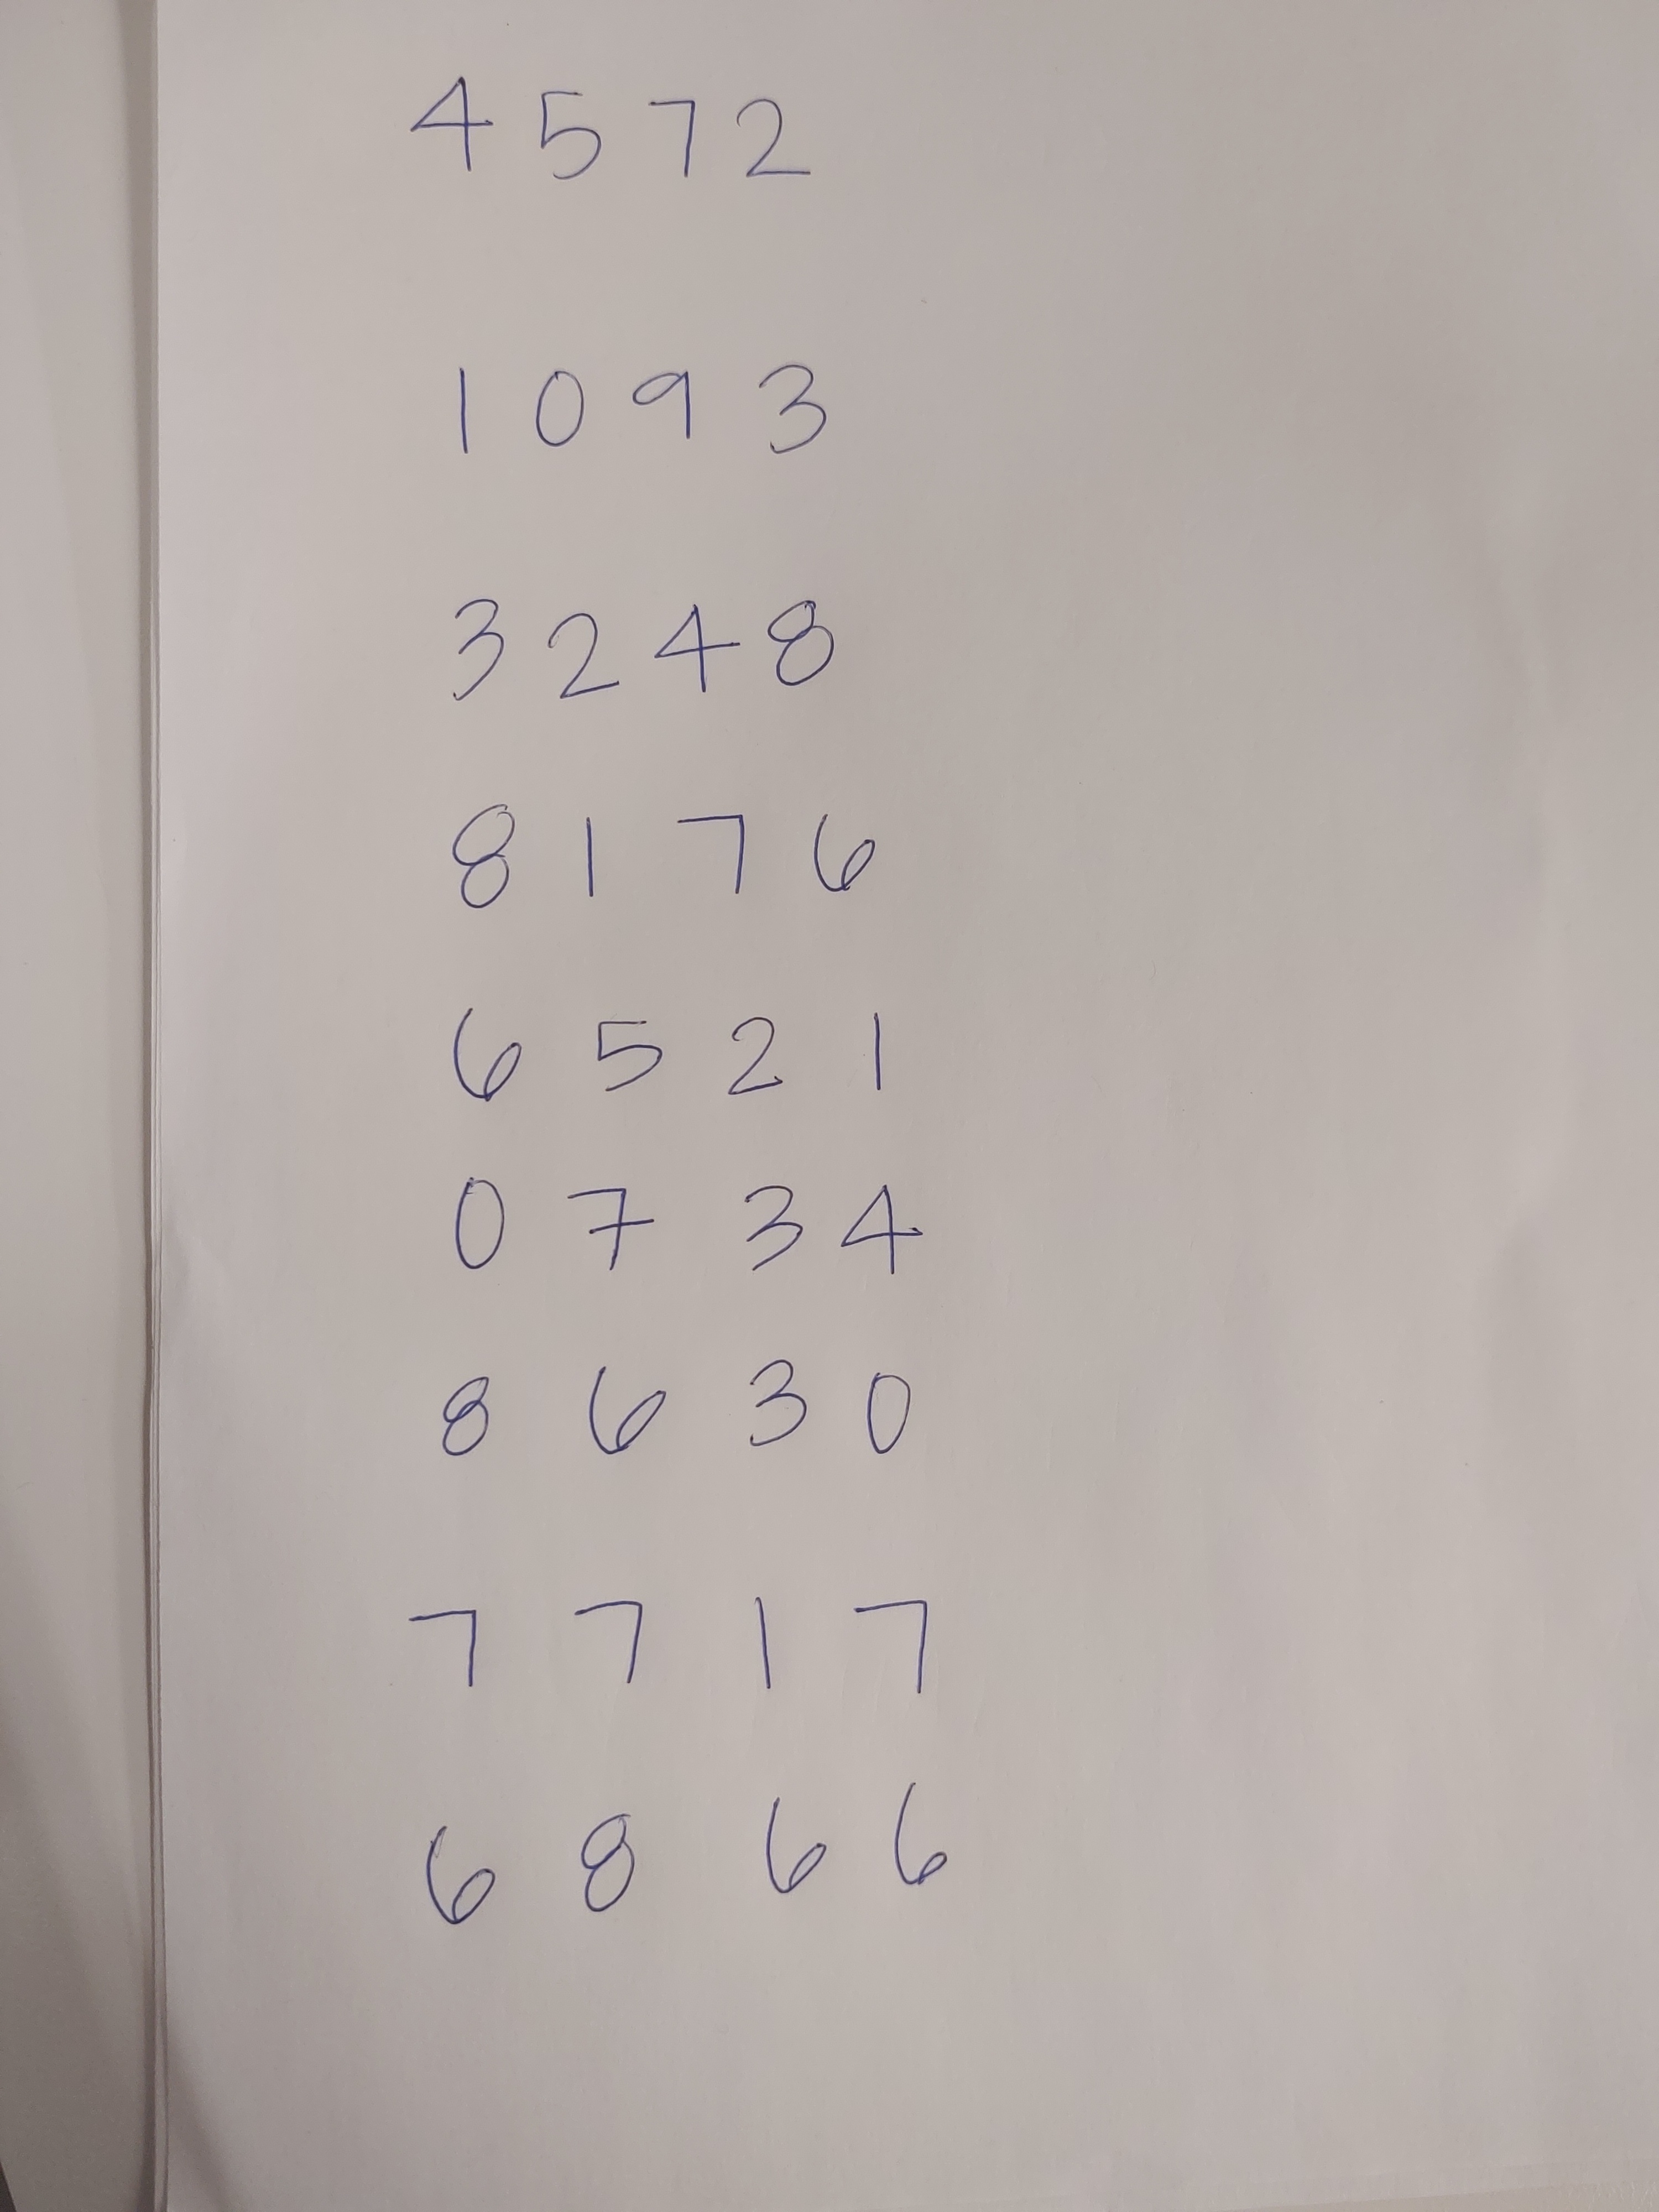 4 5 7 2
1 0 9 3
3 2 4 8
8 1 7 6
6 5 2 1
0 7 3 4
8 6 3 0
7 7 1 7
6 8 6 6